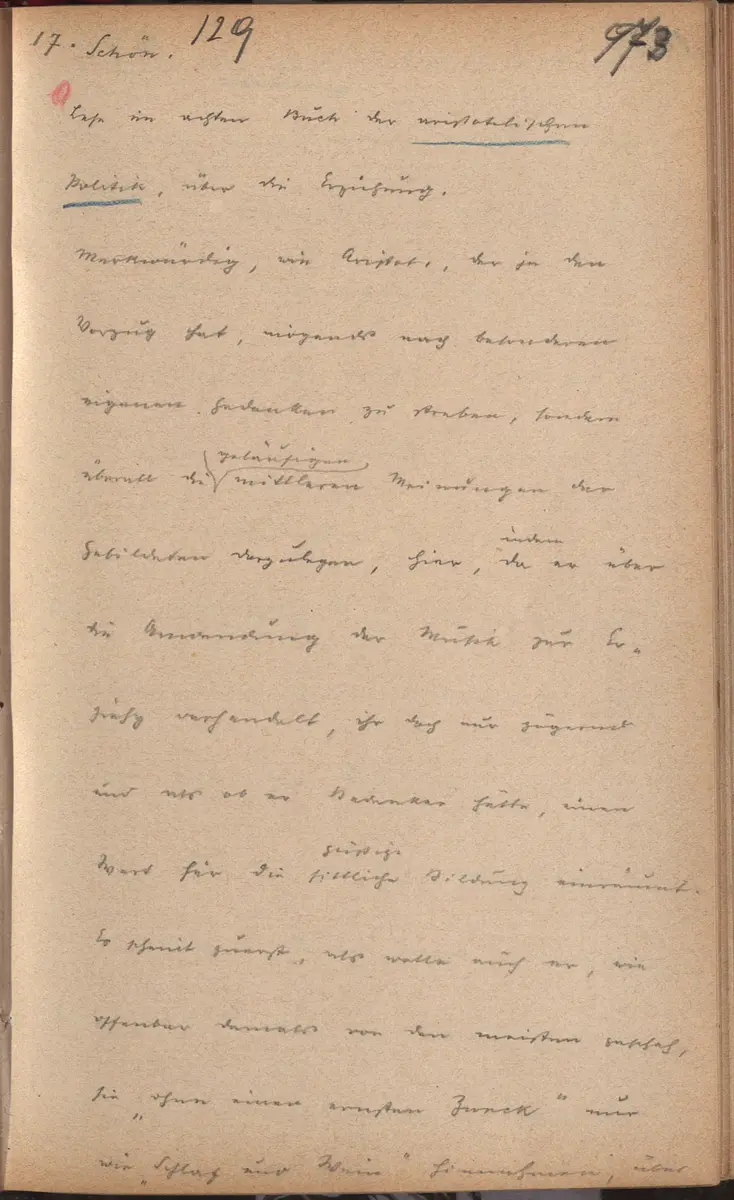 17. Schön. 129 973
Lese im achten Buch der aristotelischen
Politik, über die Erziehung.
Merkwürdig, wie Aristot., der ja den
Vorzug hat, nirgends nach besonderen
eigenen Gedanken zu streben, sondern
geläufigen
überall die mittleren Meinungen der
indem
Gebildeten darzulegen, hier, da er über
die Anwendung der Musik zur Er-
ziehg verhandelt, ihr doch nur zögernd
und als ob er Bedenken hätte, einen
geistige
Wert für die sittliche Bildung einräumt.
Es scheint zuerst, als wolle auch er, wie
offenbar damals von den meisten geschah,
sie „ohne einen ernsten Zweck" nur
wie „Schlaf und Wein" hinnehmen, über